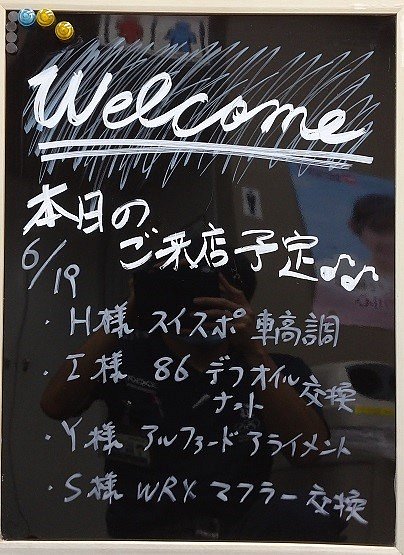 Welcome
本日の
ご来店予定♪♪
6/19
・H様 スイスポ 車高調
・I様 86 デフオイル交換
ナット
・Y様 アルファード アライメント
・S様 WRX マフラー交換